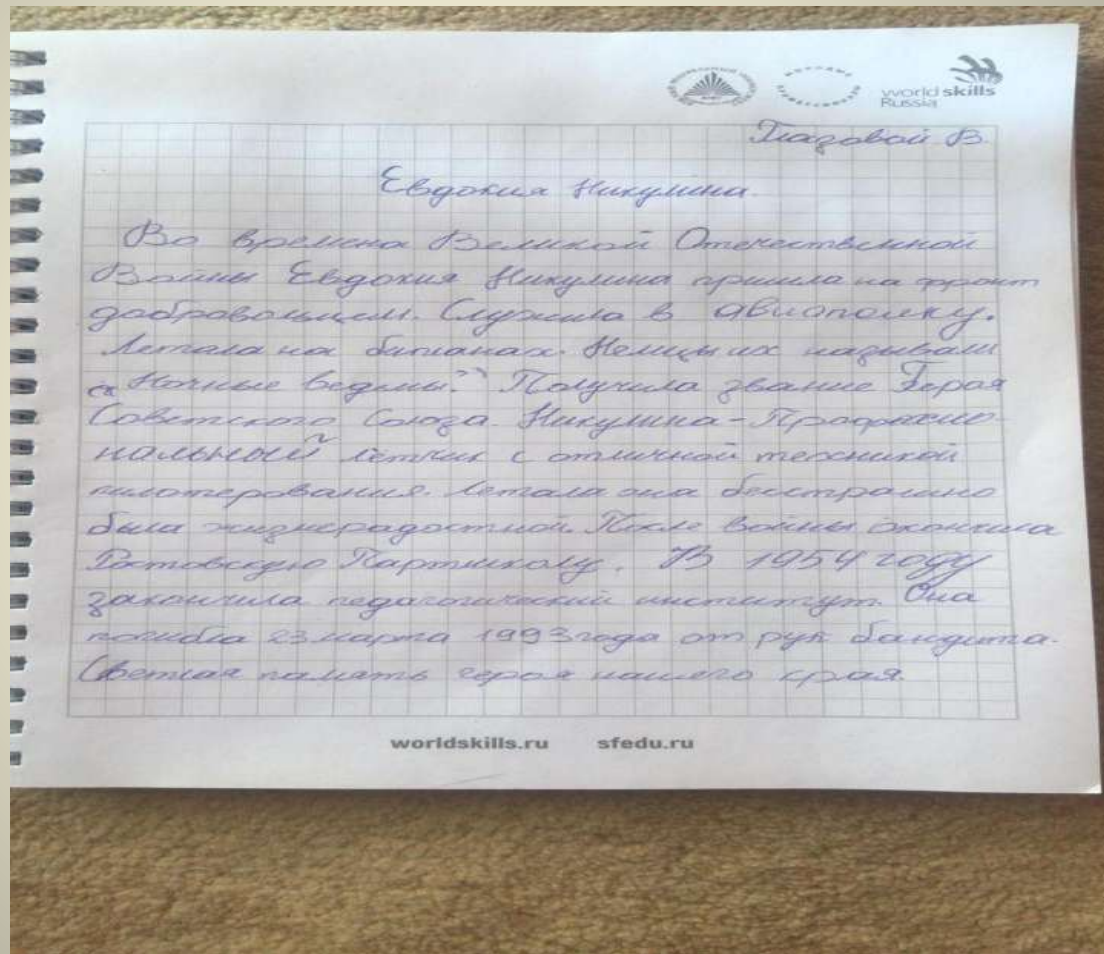 world skills
Russia
В.
Евдокия Никулина.
Во времена Великой Отечественной
Войны Евдокия Никулина пришла на фронт
добровольцем. Служила в авиаполку.
Летала на бипланах. Немцы их называли
„Ночные ведьмы." Получила звание Героя
Советского Союза. Никулина - Професио-
нальный лётчик с отличной техникой
пилотерования. Летала она бесстрашно
была жизнерадостной. После войны окончила
Ростовскую Партшколу. В 1954 году
закончила педагогический институт. Она
погибла 23 марта 1993 года от рук бандита.
Светлая память героя нашего края.
worldskills.ru sfedu.ru